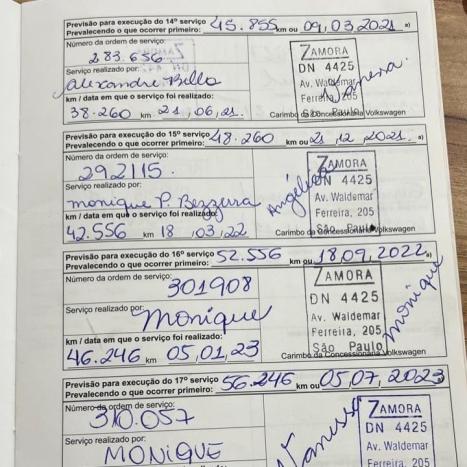 Previsão para execução do 14º serviço 45.855 km ou 09,03 2021 a)
Prevalecendo o que ocorrer primeiro:
Número da ordem de serviço:
283.656
Serviço realizado por:
Alexandre Bello
km / data em que o serviço foi realizado:
38.260 km 21,06,21.
ZAMORA
DN 4425
Av. Waldemar
Ferreira, 205
São Paulo
Vanessa.
Carimbo da Concessionária Volkswagen
Previsão para execução do 15º serviço 48.260 km ou 21 12 2021. a)
Prevalecendo o que ocorrer primeiro:
Número da ordem de serviço:
292115.
Serviço realizado por:
monique P. Bezzura
km / data em que o serviço foi realizado:
42.556 km 18,03,22
ZAMORA
DN 4425
Av. Waldemar
Ferreira, 205
São Paulo
Carimbo da Concessionária Volkswagen
Previsão para execução do 16º serviço 52.556 km ou 18.09,2022 a)
Prevalecendo o que ocorrer primeiro:
Número da ordem de serviço:
301908
Serviço realizado por:
Monique
km / data em que o serviço foi realizado:
46.246 km 05,01,23
ZAMORA
DN 4425
Av. Waldemar
Ferreira, 205
São Paulo
Monique
Carimbo da Concessionária Volkswagen
Previsão para execução do 17º serviço 56.246 km ou 05,07,2023 a)
Prevalecendo o que ocorrer primeiro:
Número da ordem de serviço:
310.057
Serviço realizado por:
MONIQUE
Vanessa
ZAMORA
DN 4425
Av. Waldemar
Ferreira, 205